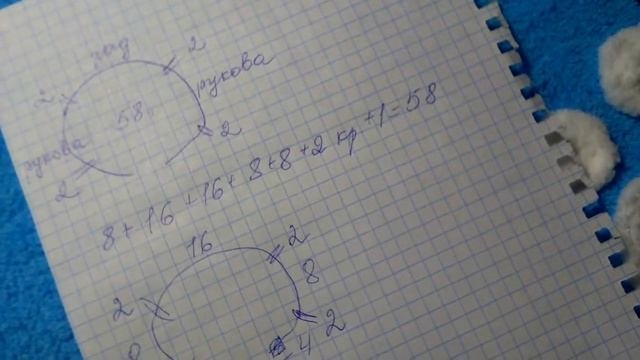 зад
2
2
рукова
58
рукова
2
2
8+16+16+8+8+2 кр +1=58
16
2
8
2
2
4